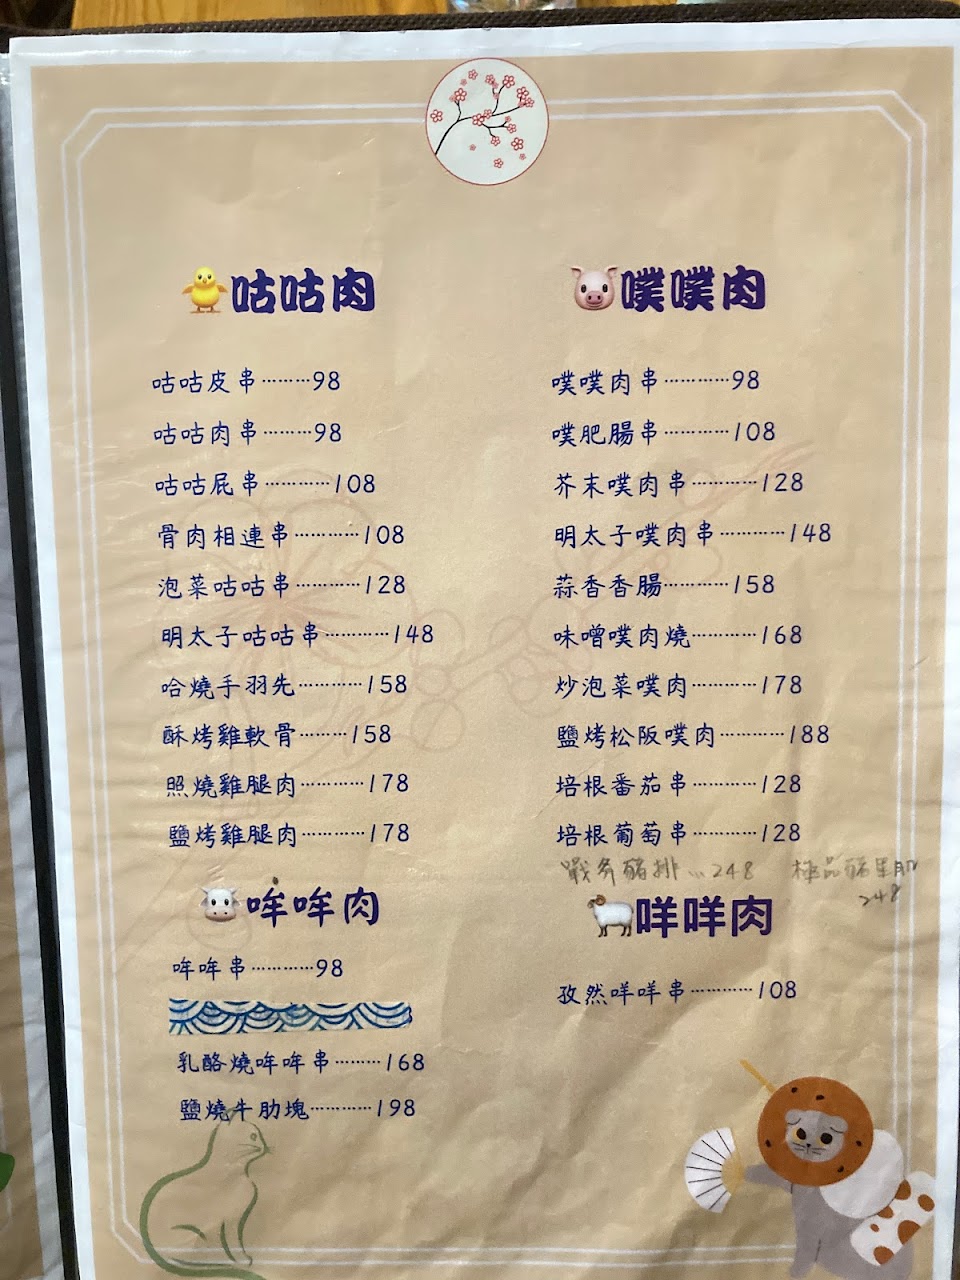 咕咕肉
咕咕皮串………98
咕咕肉串………98
咕咕屁串…………108
骨肉相連串…………108
泡菜咕咕串…………128
明太子咕咕串…………148
哈燒手羽先…………158
酥烤雞軟骨………158
照燒雞腿肉…………178
鹽烤雞腿肉…………178
哞哞肉
哞哞串…………98
乳酪燒哞哞串………168
鹽燒牛肋塊…………198
噗噗肉
噗噗肉串…………98
噗肥腸串…………108
芥末噗肉串…………128
明太子噗肉串…………148
蒜香香腸…………158
味噌噗肉燒…………168
炒泡菜噗肉…………178
鹽烤松阪噗肉…………188
培根番茄串…………128
培根葡萄串…………128
戰斧豬排…248
極品豬里肌
248
咩咩肉
孜然咩咩串…………108